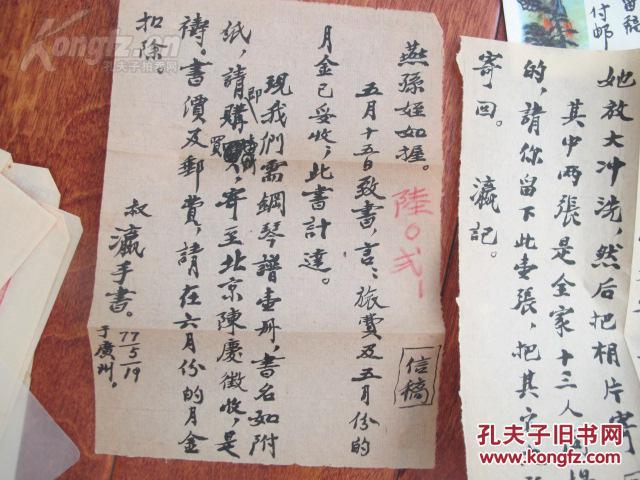 燕孫姪如握。
五月十五日致書，言：旅費及五月份的
月金已妥收，此書計達。
現我們需鋼琴譜壹册，書名如附
紙，請即購買寄至北京陳慶徵收，是
禱。書價及郵費，請在六月份的月金
扣除。
叔瀛手書。
77/5/19
于廣州。
陸〇弍
信稿
她放大冲洗，然后把相片寄
其中兩張是全家十三人
的，請你留下此壹張，把其它
寄回。瀛記。
付郵
Kongfz.com
孔夫子旧书网
孔夫子旧书网
www.kongfz.com